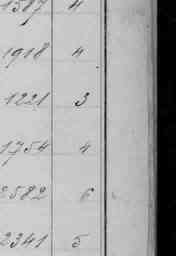 1587 4
1918 4
1221 3
1754 4
2582 6
2341 5